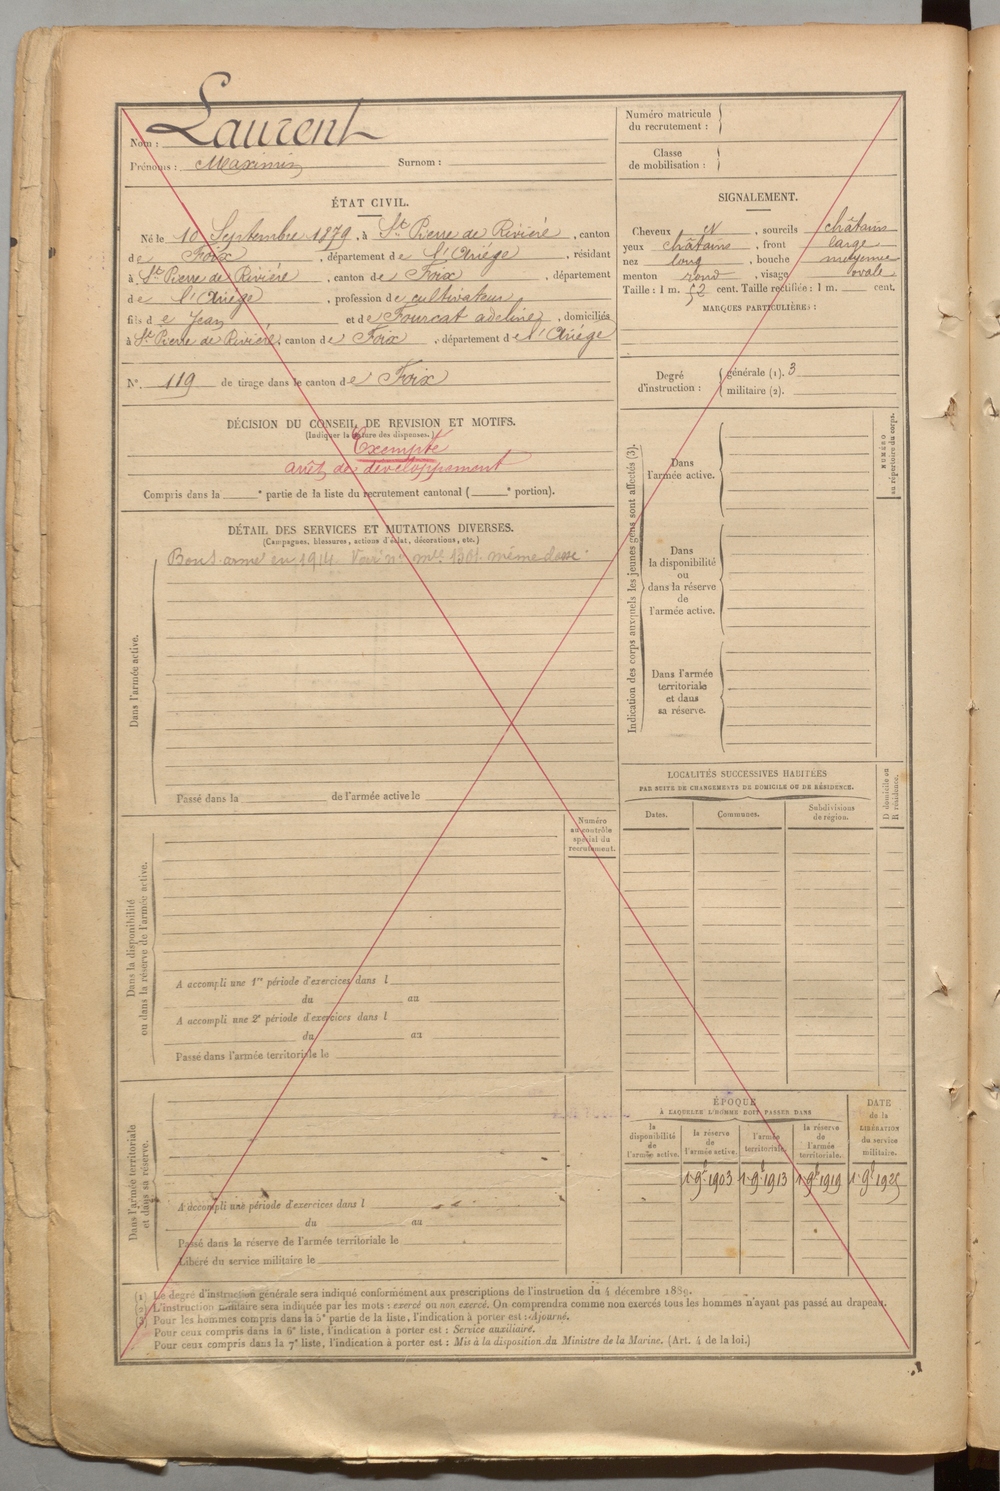 Nom : Laurent
Prénoms : Maximin Surnom :
Numéro matricule
du recrutement :
Classe
de mobilisation :
ÉTAT CIVIL.
Né le 10 Septembre 1879, à St Pierre de Rivière, canton
de Foix, département de l'Ariège, résidant
à St Pierre de Rivière, canton de Foix, département
de l'Ariège, profession de cultivateur
fils de Jean et de Fourcat adeline, domiciliés
à St Pierre de Rivière, canton de Foix, département de l'Ariège
N° 119 de tirage dans le canton de Foix
SIGNALEMENT.
Cheveux N, sourcils châtains
yeux châtains, front large
nez long, bouche moyenne
menton rond, visage ovale
Taille : 1 m. 52 cent. Taille rectifiée : 1 m. cent.
MARQUES PARTICULIÈRES :
Degré
d'instruction :
générale (1). 3
militaire (2).
DÉCISION DU CONSEIL DE REVISION ET MOTIFS.
(Indiquer la nature des dispenses.)
Exempté
arrêt de développement
Compris dans la e partie de la liste du recrutement cantonal ( e portion).
DÉTAIL DES SERVICES ET MUTATIONS DIVERSES.
(Campagnes, blessures, actions d'éclat, décorations, etc.)
Bon S. armé en 1914. Voir n° mle 1301 même classe.
Dans l'armée active.
Passé dans la de l'armée active le
Indication des corps auxquels les jeunes gens sont affectés (3).
Dans
l'armée active.
Dans
la disponibilité
ou
dans la réserve
de
l'armée active.
Dans l'armée
territoriale
et dans
sa réserve.
NUMÉRO
au répertoire du corps.
LOCALITÉS SUCCESSIVES HABITÉES
PAR SUITE DE CHANGEMENTS DE DOMICILE OU DE RÉSIDENCE.
Dates.
Communes.
Subdivisions
de région.
D domicile ou
R résidence.
Numéro
au contrôle
spécial du
recrutement.
Dans la disponibilité
ou dans la réserve de l'armée active.
A accompli une 1re période d'exercices dans l
du au
A accompli une 2e période d'exercices dans l
du au
Passé dans l'armée territoriale le
Dans l'armée territoriale
et dans sa réserve.
A accompli une période d'exercices dans l
du au
Passé dans la réserve de l'armée territoriale le
Libéré du service militaire le
ÉPOQUE
À LAQUELLE L'HOMME DOIT PASSER DANS
la
disponibilité
de
l'armée active.
la réserve
de
l'armée active.
l'armée
territoriale.
la réserve
de
l'armée
territoriale.
DATE
de la
LIBÉRATION
du service
militaire.
1 9e 1903 1 9e 1913 1 9e 1919 1 9e 1925
(1) Le degré d'instruction générale sera indiqué conformément aux prescriptions de l'instruction du 4 décembre 1889.
(2) L'instruction militaire sera indiquée par les mots : exercé ou non exercé. On comprendra comme non exercés tous les hommes n'ayant pas passé au drapeau.
(3) Pour les hommes compris dans la 5e partie de la liste, l'indication à porter est : Ajourné.
Pour ceux compris dans la 6e liste, l'indication à porter est : Service auxiliaire.
Pour ceux compris dans la 7e liste, l'indication à porter est : Mis à la disposition du Ministre de la Marine. (Art. 4 de la loi.)